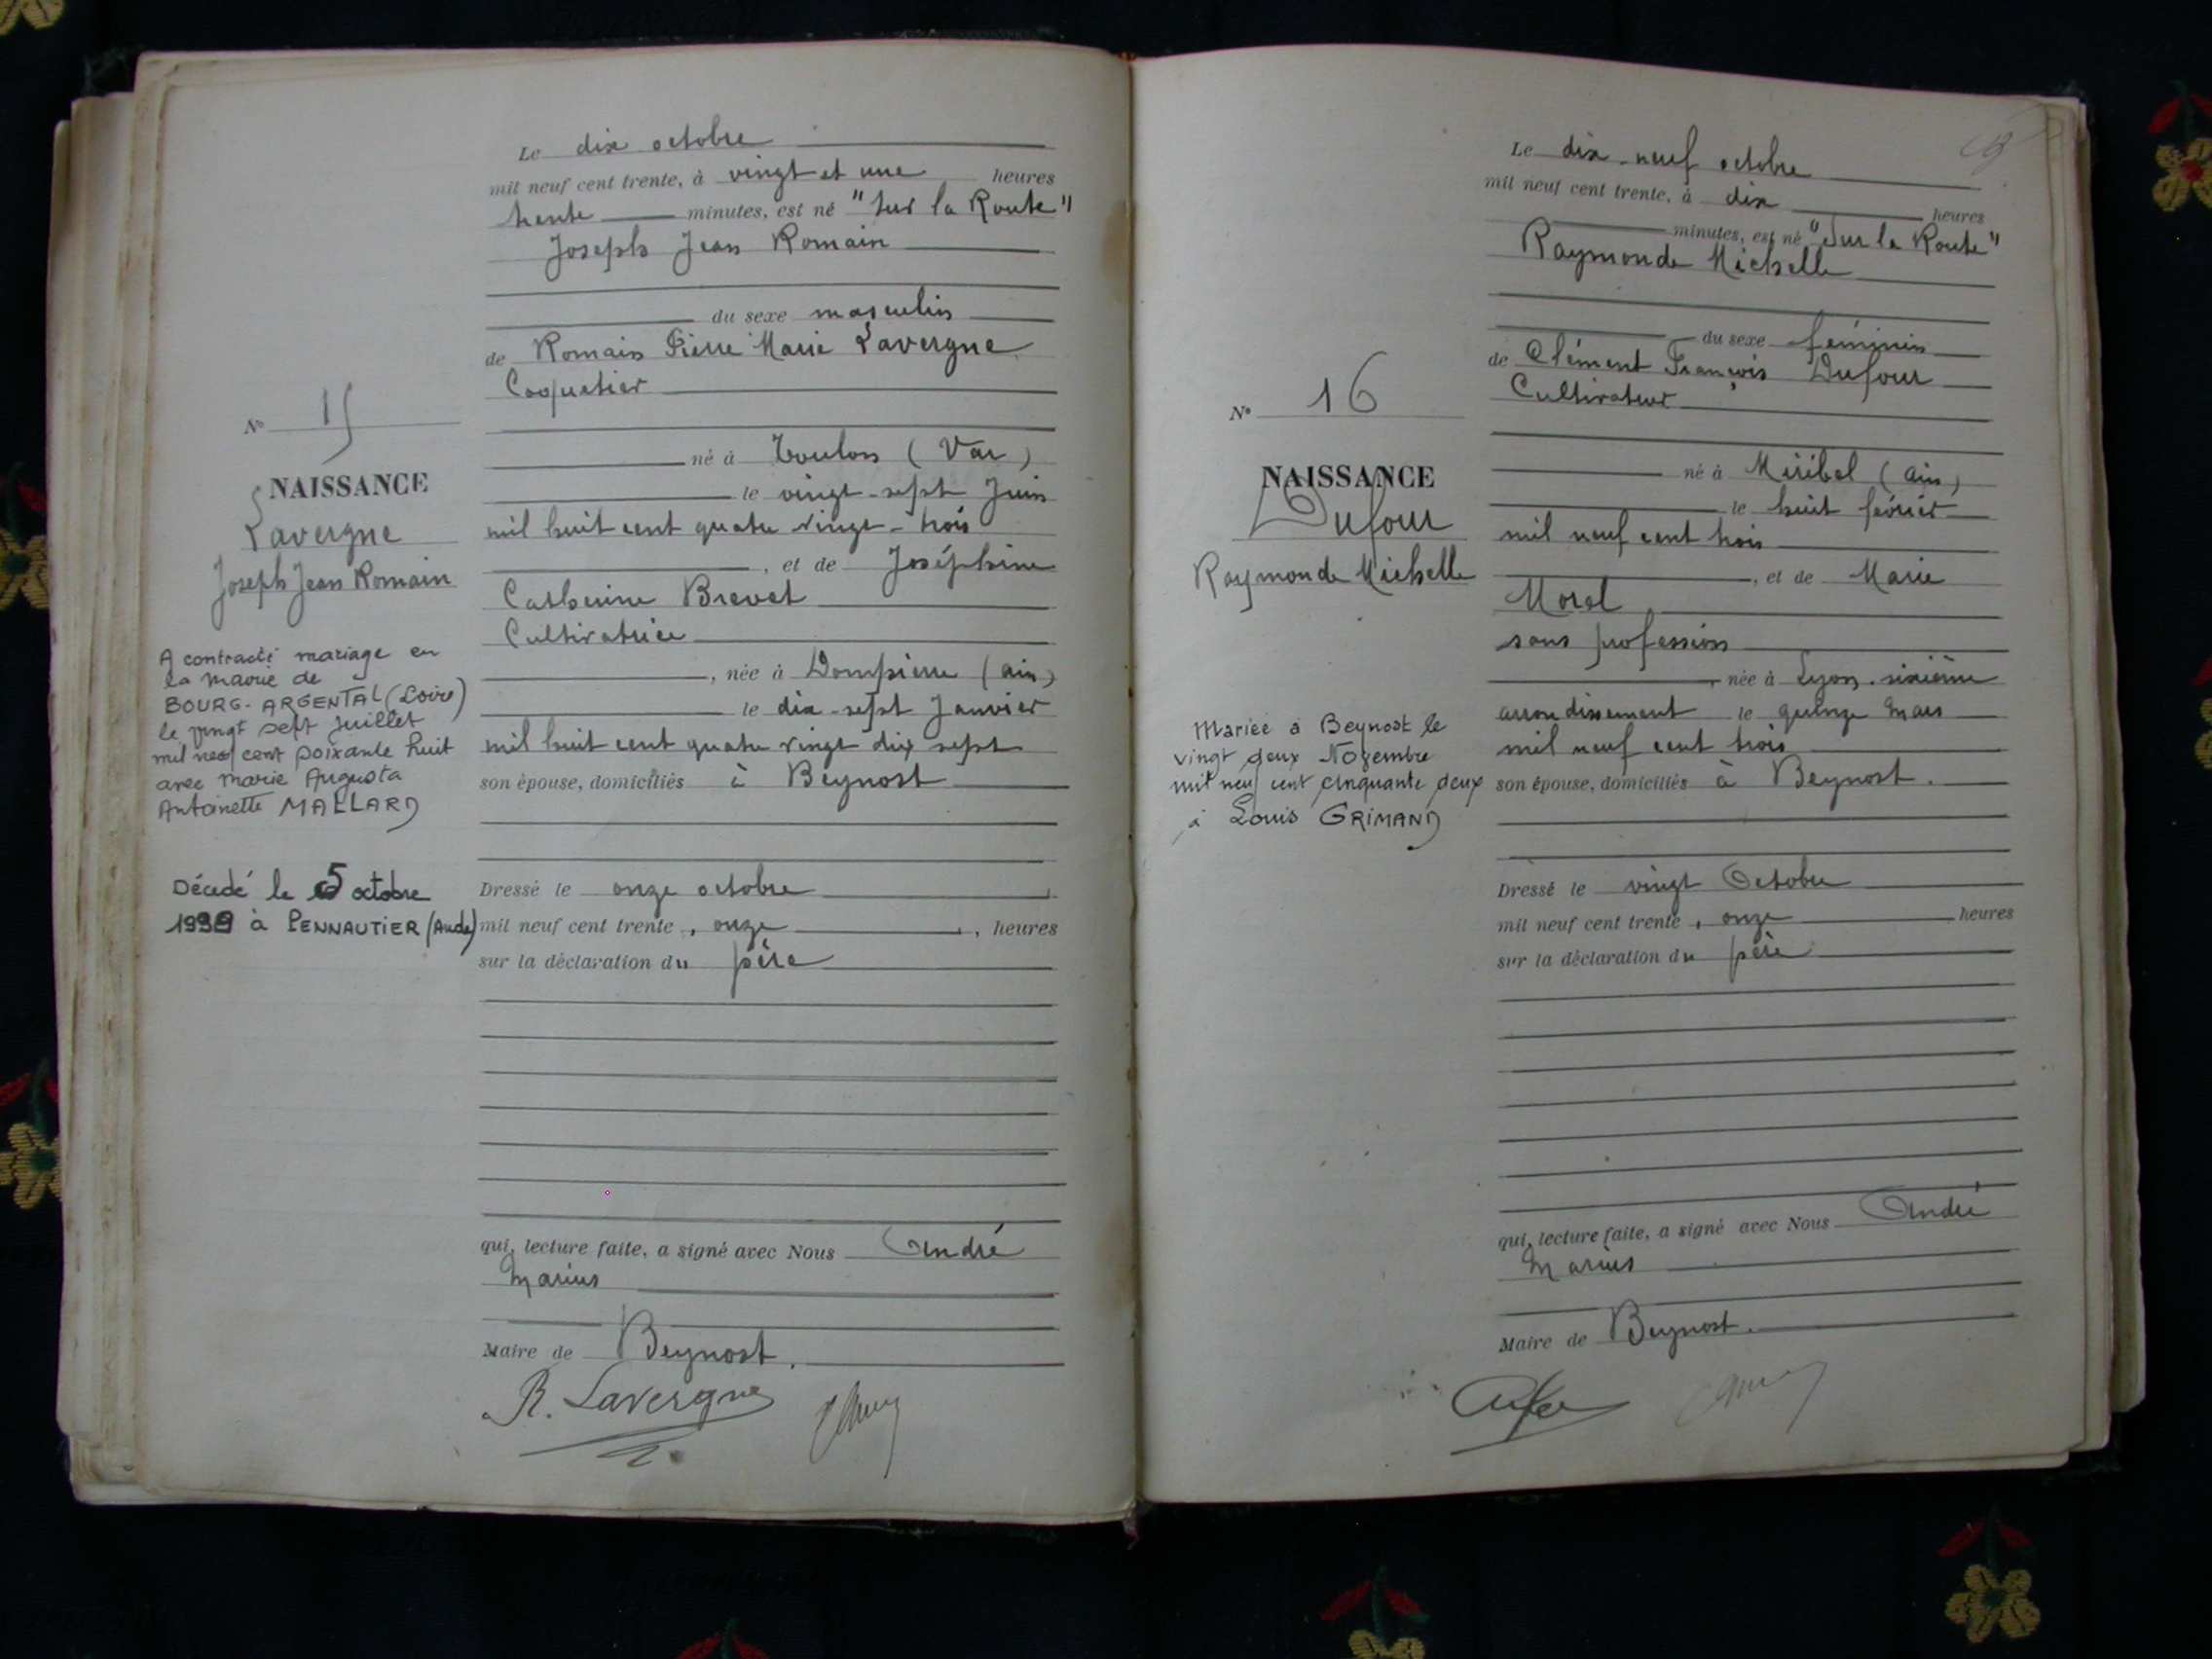 Le dix octobre
mil neuf cent trente, à vingt et une heures
trente minutes, est né "Sur la Route"
Joseph Jean Romain
du sexe masculin
de Romain Pierre Marie Lavergne
Coquetier
né à Toulon (Var)
le vingt-sept Juin
mil huit cent quatre vingt-trois
, et de Joséphine
Catherine Brevet
Cultivatrice
, née à Dompierre (Ain)
le dix-sept Janvier
mil huit cent quatre vingt dix sept
son épouse, domiciliés à Beynost
Dressé le onze octobre
mil neuf cent trente, onze, heures
sur la déclaration du père
qui, lecture faite, a signé avec Nous André
Marius
Maire de Beynost.
R. Lavergne
N° 15
NAISSANCE
Lavergne
Joseph Jean Romain
A contracté mariage en
la mairie de
BOURG-ARGENTAL (Loire)
le vingt sept juillet
mil neuf cent soixante huit
avec Marie Augusta
Antoinette MALLARD
Décédé le 5 octobre
à PENNAUTIER (Aude)
Le dix-neuf octobre
mil neuf cent trente, à dix heures
minutes, est né "Sur la Route"
Raymonde Michelle
du sexe féminin
de Clément François Dufour
Cultivateur
né à Miribel (Ain)
le huit février
mil neuf cent trois
, et de Marie
Morel
sans profession
, née à Lyon. sixième
arrondissement le quinze Mars
mil neuf cent trois
son épouse, domiciliés à Beynost.
Dressé le vingt Octobre
mil neuf cent trente, onze heures
sur la déclaration du père
qui, lecture faite, a signé avec Nous André
Marius
Maire de Beynost.
N° 16
NAISSANCE
Dufour
Raymonde Michelle
Mariée à Beynost le
vingt deux Novembre
mil neuf cent cinquante deux
à Louis GRIMAND